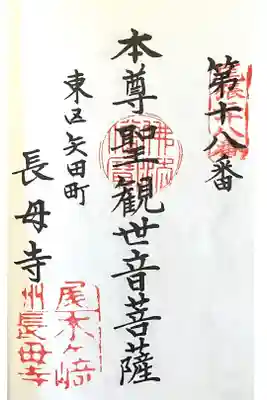 第十八番
本尊聖観世音菩薩
東区矢田町
長母寺
尾州木ヶ﨑
長母寺